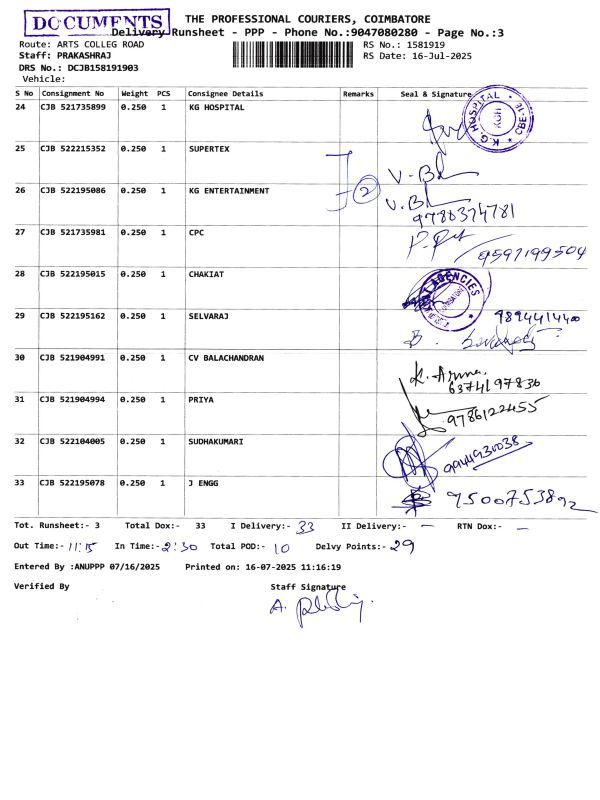 DOCUMENTS
THE PROFESSIONAL COURIERS, COIMBATORE
Delivery Runsheet - PPP - Phone No.:9047080280 - Page No.:3
Route: ARTS COLLEG ROAD
RS No.: 1581919
Staff: PRAKASHRAJ
RS Date: 16-Jul-2025
DRS No.: DCJB158191903
Vehicle:
S No Consignment No Weight PCS Consignee Details Remarks Seal & Signature
24 CJB 521735899 0.250 1 KG HOSPITAL
K.G. HOSPITAL * CBE-18 * KGH
25 CJB 522215352 0.250 1 SUPERTEX
V-BL
26 CJB 522195086 0.250 1 KG ENTERTAINMENT 2
V.BL
9788374781
27 CJB 521735981 0.250 1 CPC
9597199504
28 CJB 522195015 0.250 1 CHAKIAT
AGENCIES
29 CJB 522195162 0.250 1 SELVARAJ 9894414400
B.
30 CJB 521904991 0.250 1 CV BALACHANDRAN
K. Aruna.
6374197836
31 CJB 521904994 0.250 1 PRIYA
9786122455
32 CJB 522104005 0.250 1 SUDHAKUMARI
9944931038
33 CJB 522195078 0.250 1 J ENGG
9500753892
Tot. Runsheet:- 3 Total Dox:- 33 I Delivery:- 33 II Delivery:- — RTN Dox:- —
Out Time:- 11:15 In Time:- 2:30 Total POD:- 10 Delvy Points:- 29
Entered By :ANUPPP 07/16/2025 Printed on: 16-07-2025 11:16:19
Verified By Staff Signature
A.